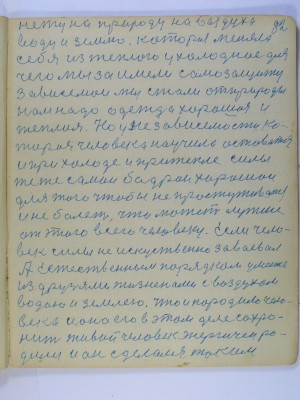 нету на природу на воздухъ 92
воду и землю. которая меняла
себя из теплого у холодное для
чего мы за имели самозащиту
зависемои мы стали от природы
нам надо одежда хорошая и
теплая. Но у независемости ко-
торая человека научила оставатся
и при холоде и при тепле силы
теже самаи бадраи харошаи
для того чтобы не простуживатся
и не болет, что может лутше
от этого всего человеку. Если чело-
век силы не искуственно заваевал
А естественным порядкам умение
из друзями жизненами с воздухом
водою и землею. то и породило чело-
века и оно его в этом деле сохро-
нит живой человек энергичен ро-
дили и он сделался таким